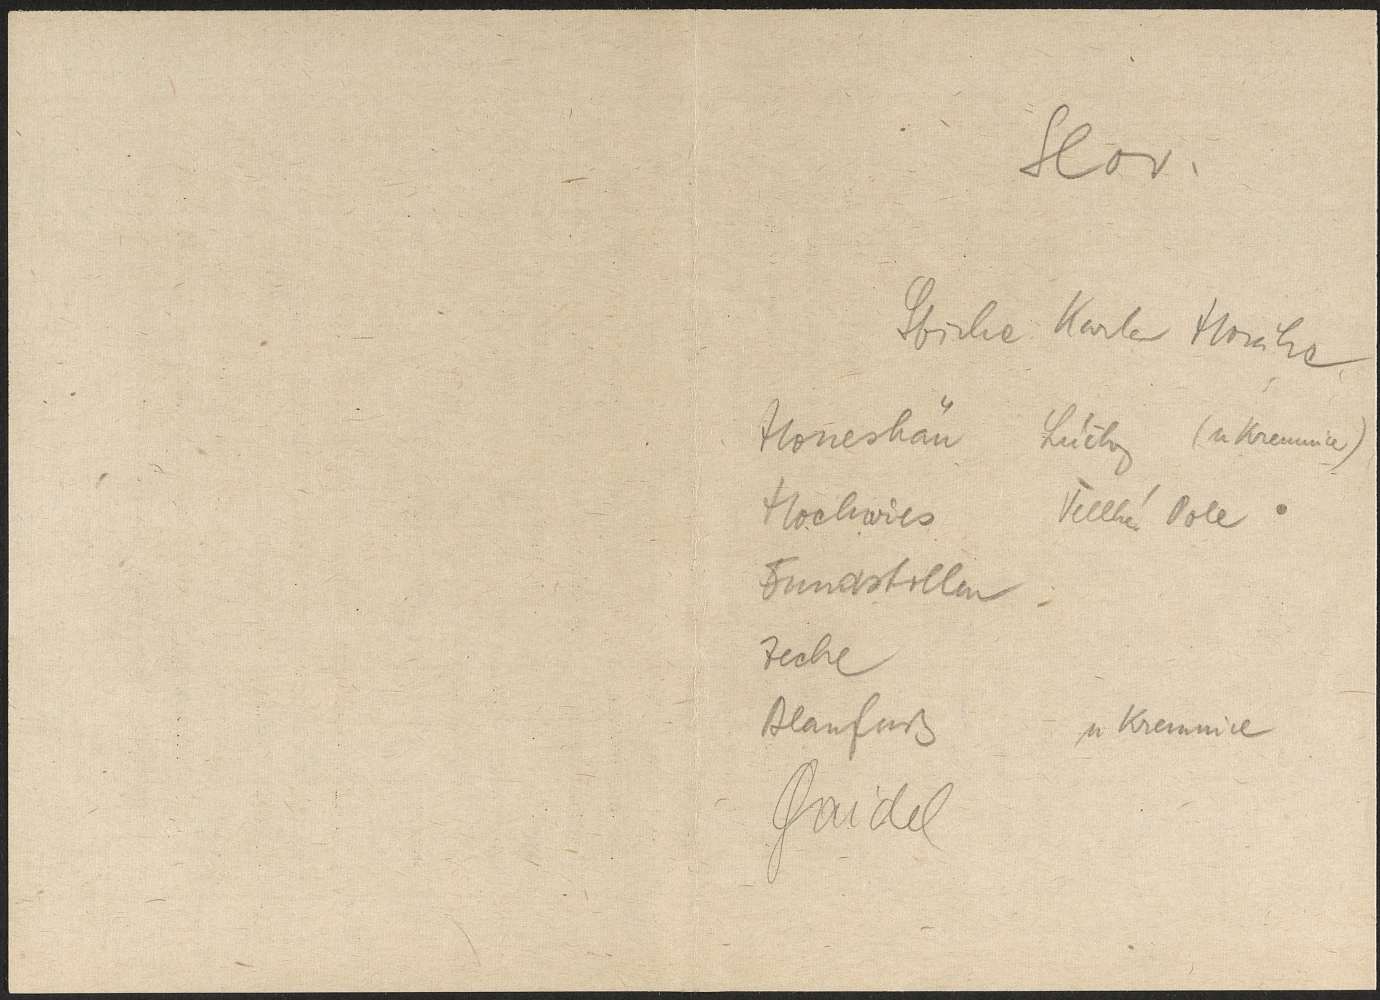 Slov.
Sbírka Karla Horálka
Honeshäu Lúčky (u Kremnice)
Hochwies Velké Pole
Fundstollen
Zeche
Blaufuß u Kremnice
Gaidel